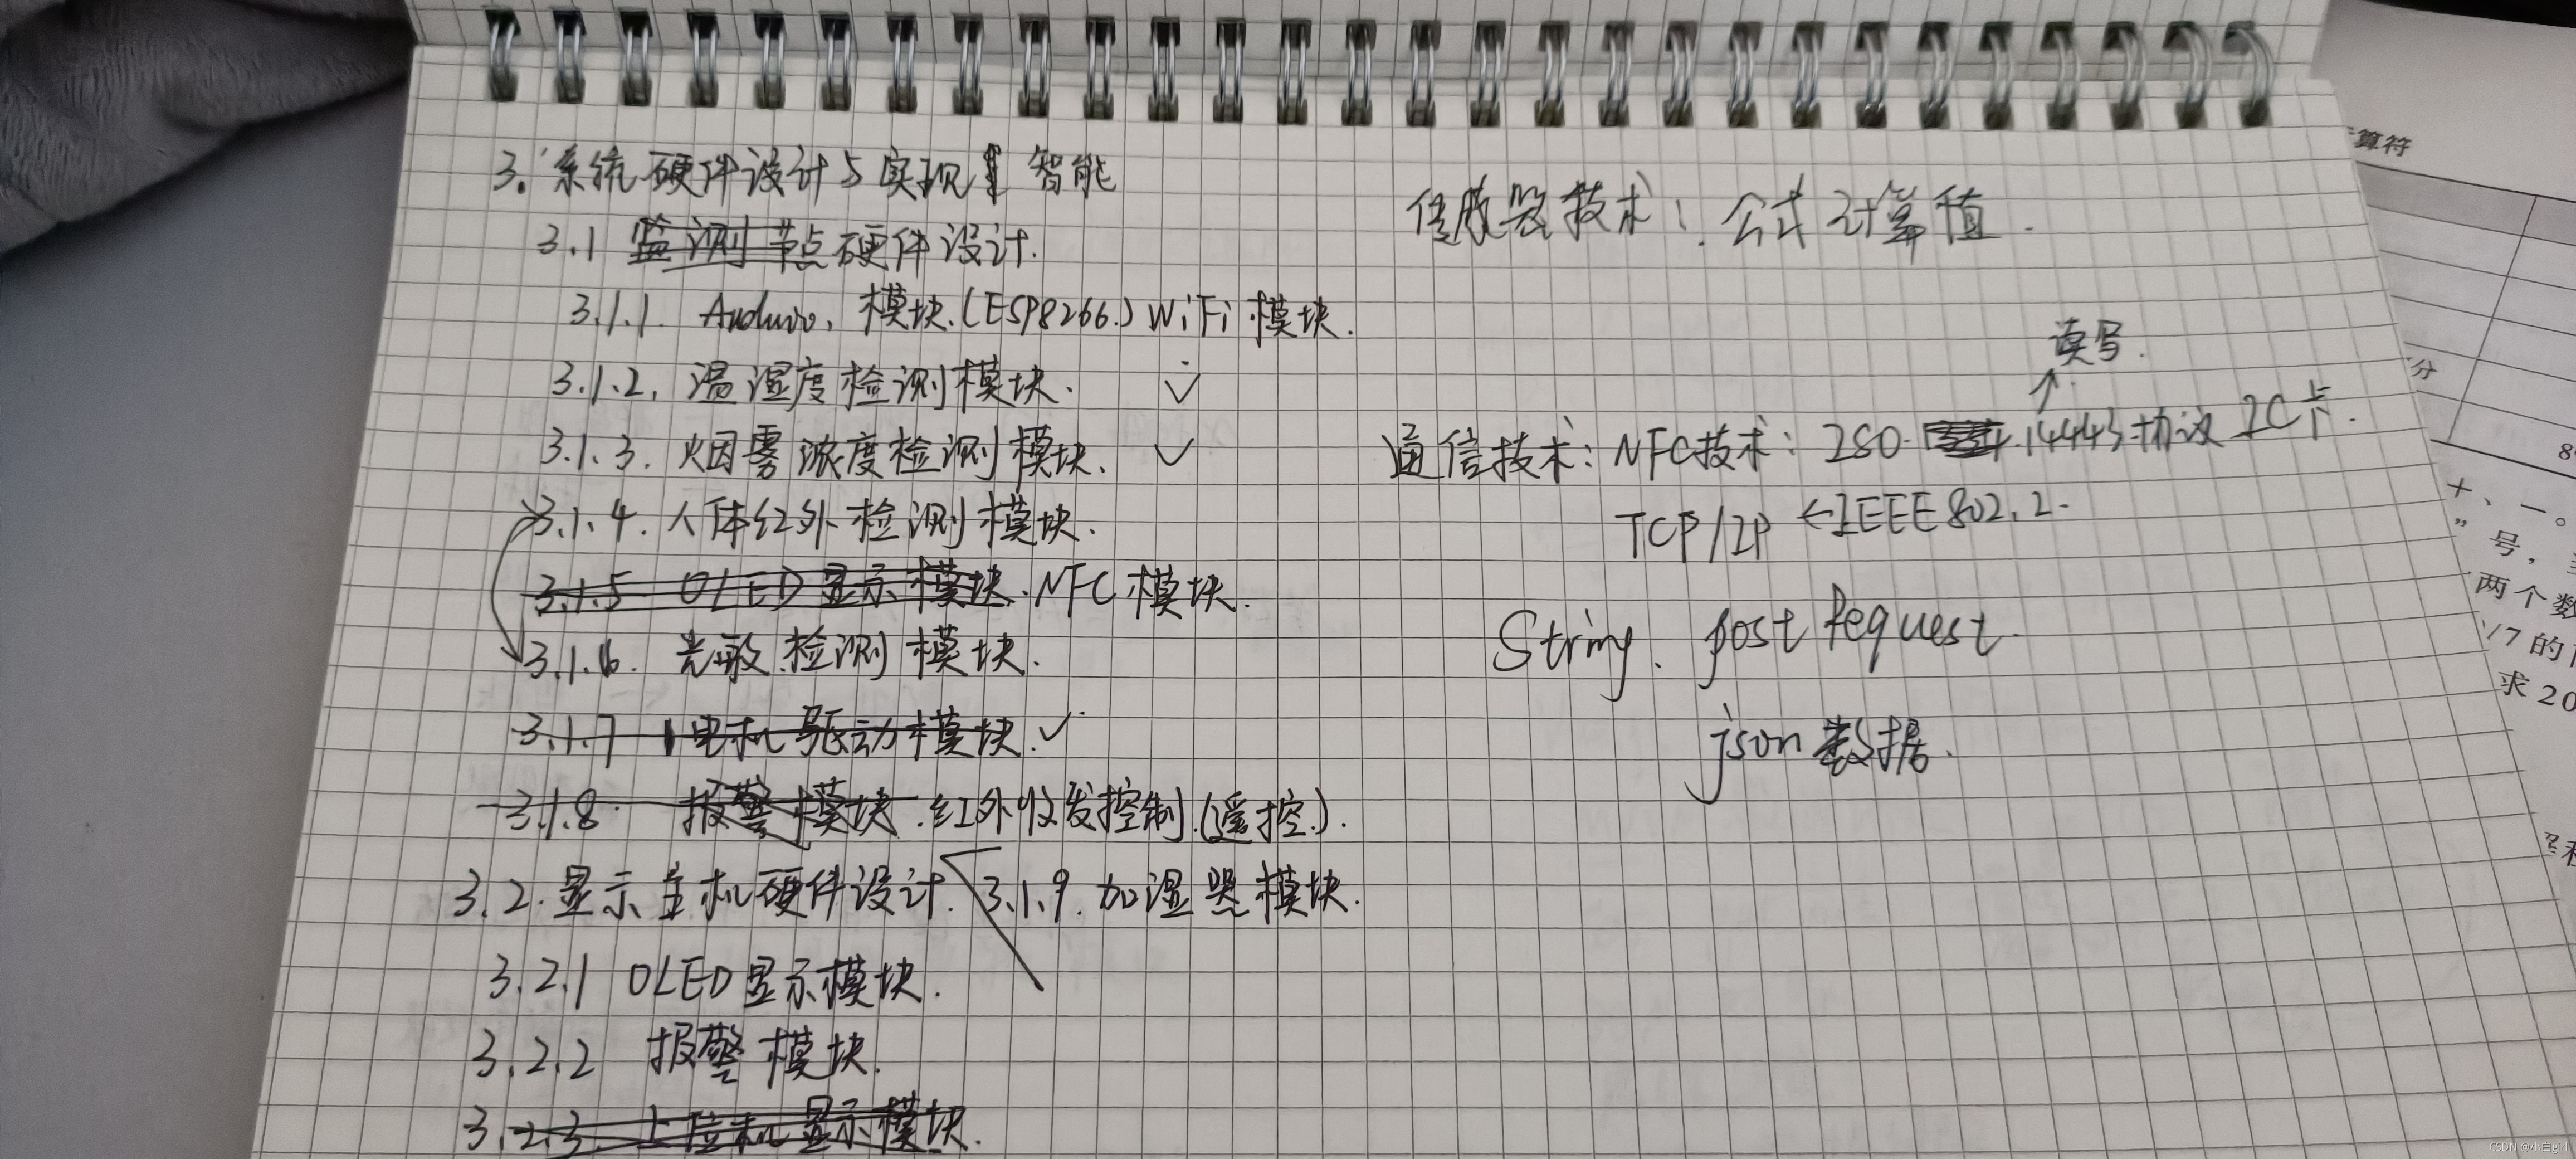 3. 系统硬件设计与实现 智能
3.1 监测节点硬件设计.
3.1.1. Arduino. 模块.(ESP8266.) WiFi 模块.
3.1.2. 温湿度检测模块. ✓
3.1.3. 烟雾浓度检测模块. ✓
3.1.4. 人体红外检测模块.
3.1.5 OLED 显示模块. NFC 模块.
3.1.6. 光敏检测模块.
3.1.7 电机驱动模块. ✓
3.1.8 报警模块. 红外收发控制.(遥控.).
3.2. 显示主机硬件设计. 3.1.9. 加湿器模块.
3.2.1 OLED 显示模块.
3.2.2 报警模块.
3.2.3. 上位机显示模块.
传感器技术: 公式 计算值.
读写.
通信技术: NFC技术: ISO 14443 协议 IC卡.
TCP/IP ←IEEE 802.2.
String. post Request.
json 数据.
算符
分
+、一。
”号,
两个数
1/7 的
求 20
CSDN @小白girl